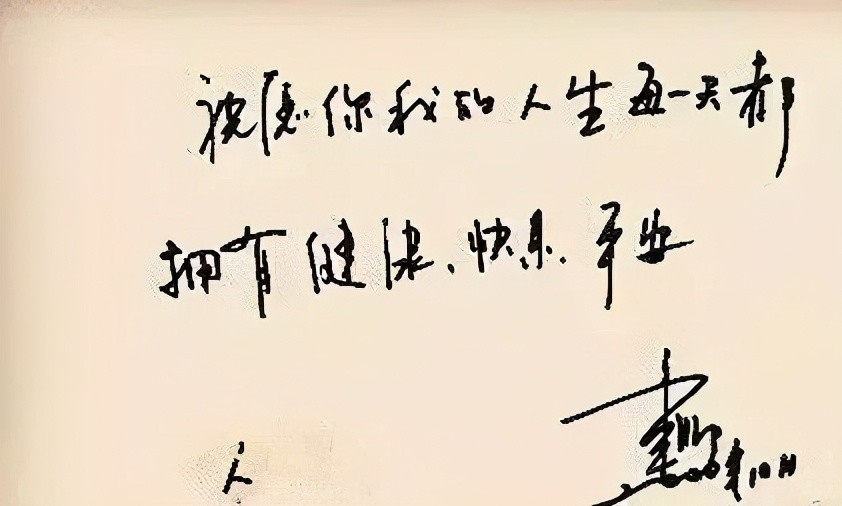 祝愿你我的人生每一天都
拥有健康、快乐、平安
人
年10月